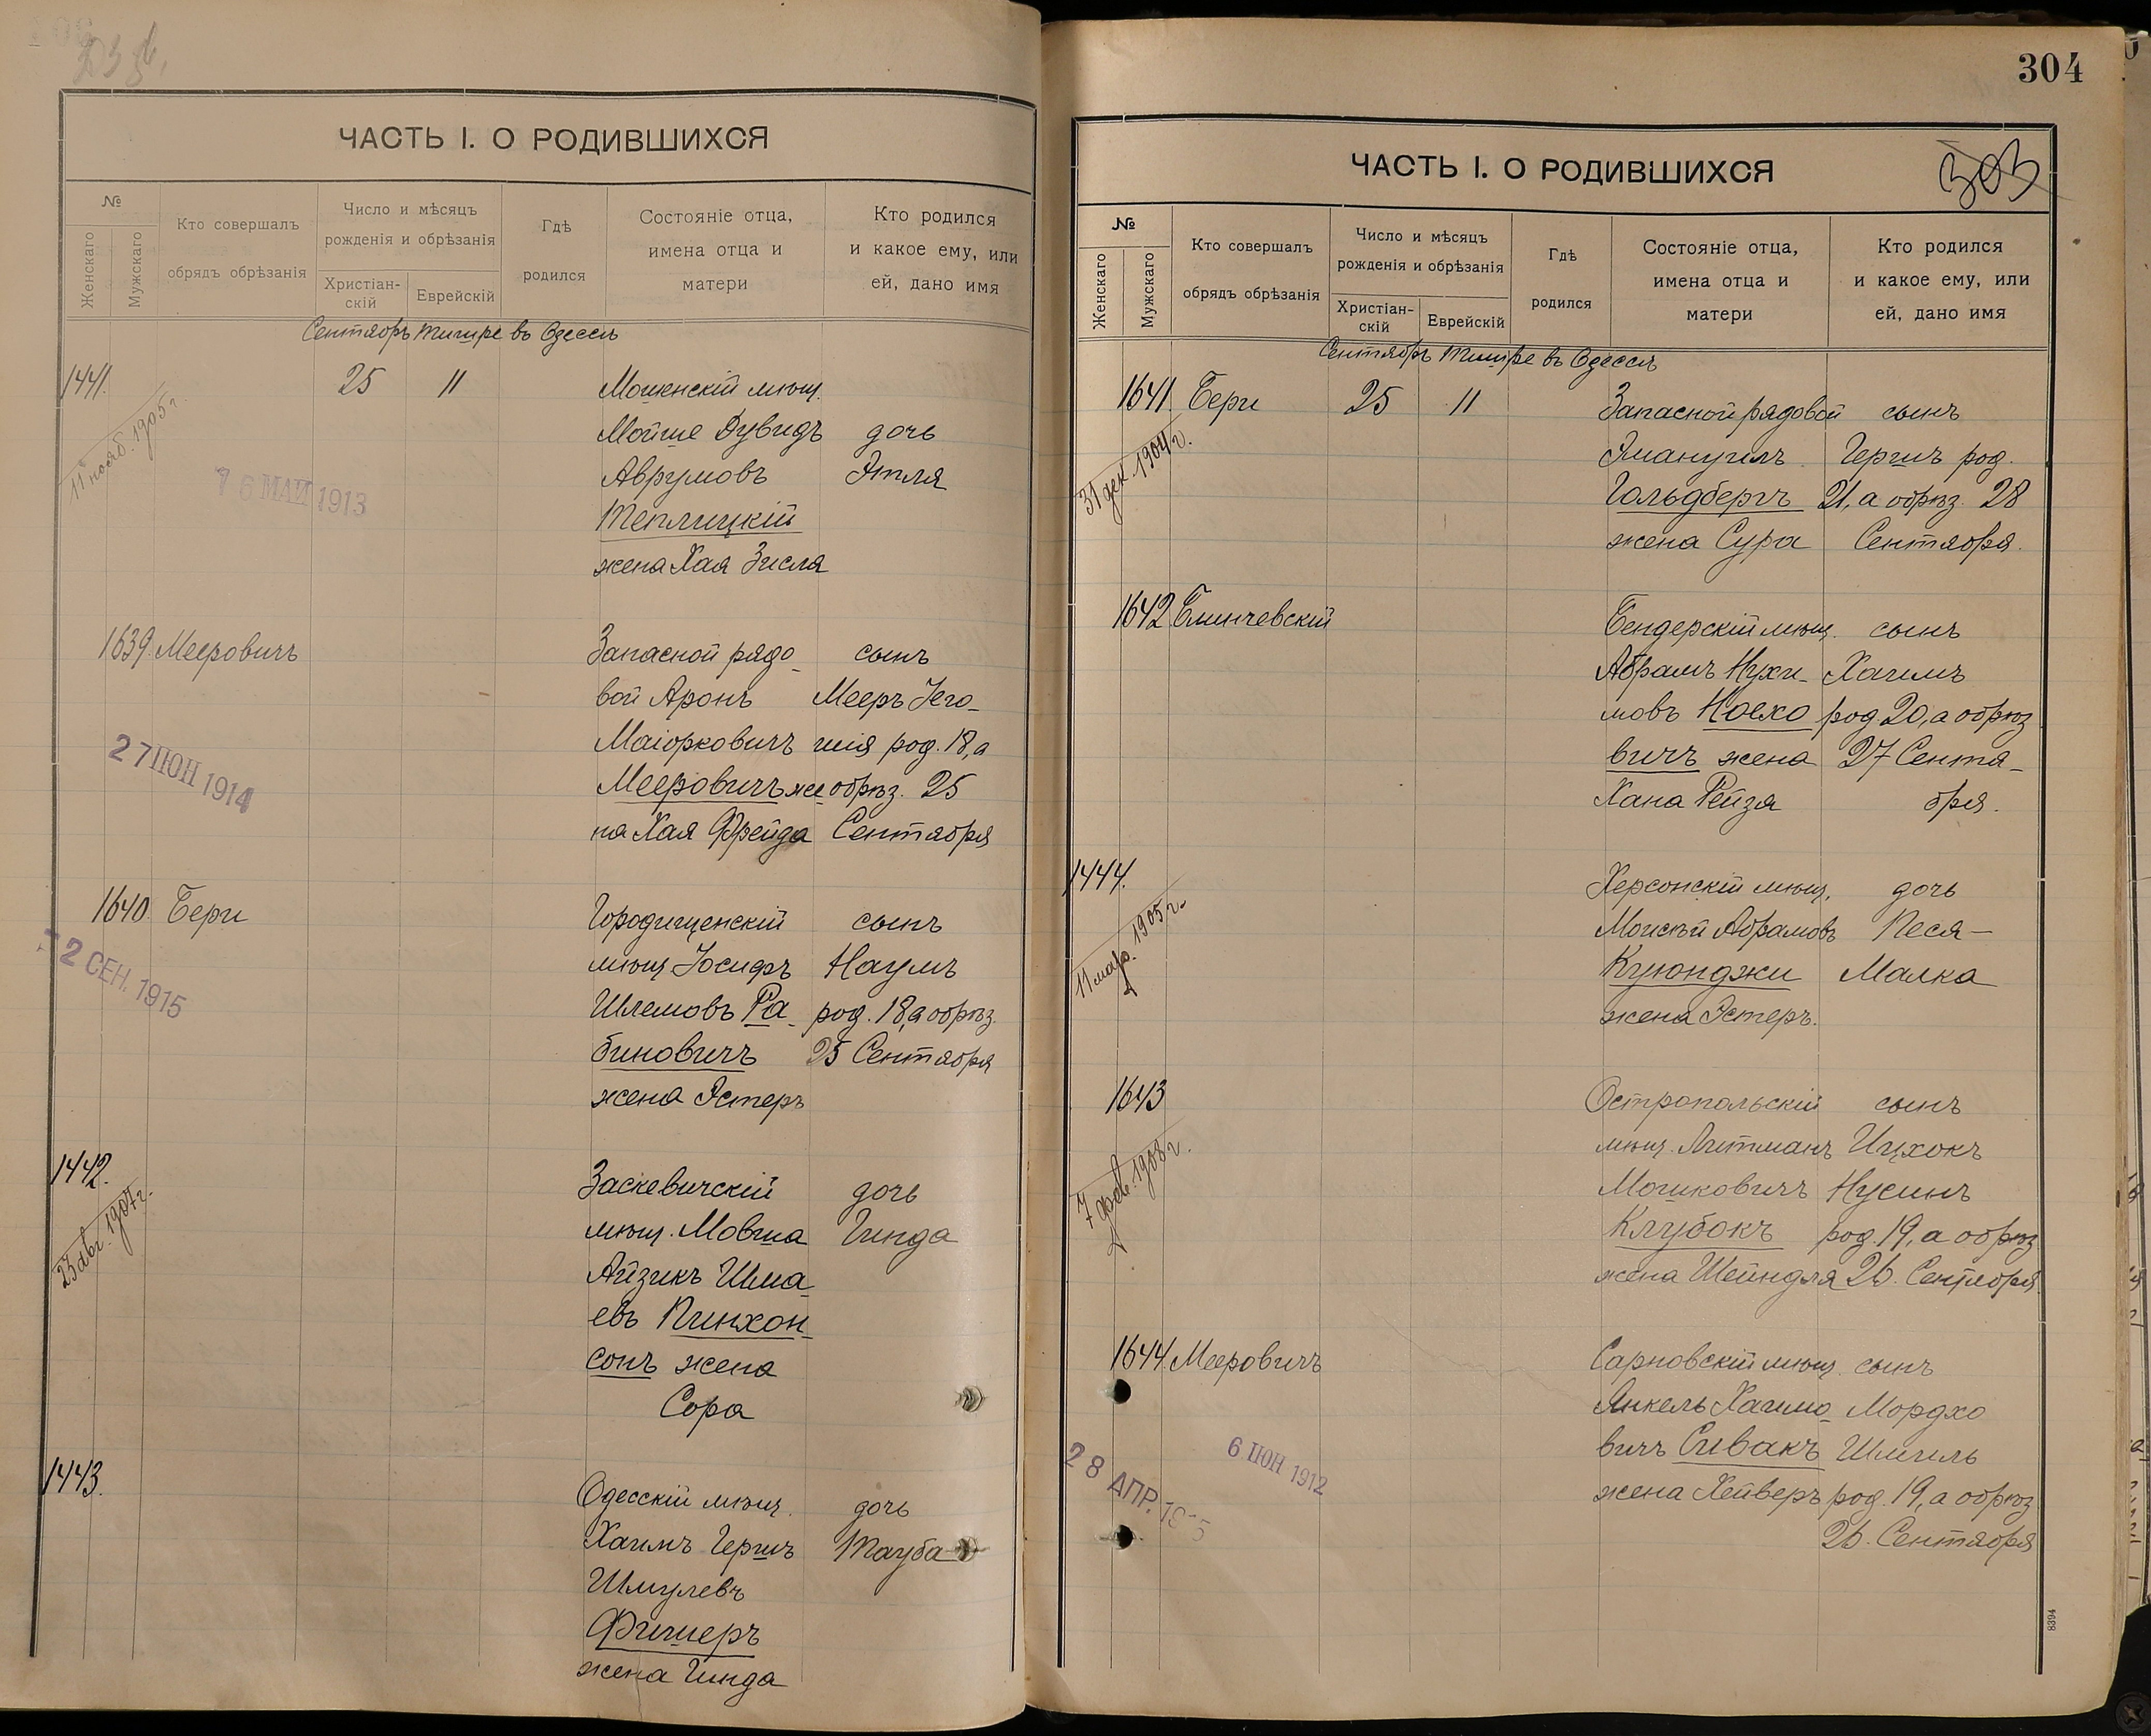 ЧАСТЬ I. О РОДИВШИХСЯ
№
Женскаго
Мужскаго
Кто совершалъ
обрядъ обрѣзанія
Число и мѣсяцъ
рожденія и обрѣзанія
Христіан-
скій
Еврейскій
Гдѣ
родился
Состояніе отца,
имена отца и
матери
Кто родился
и какое ему, или
ей, дано имя
Сентябрь Тишре въ Одессѣ
1441. 25 11 Мошенскій мѣщ.
Мойше Дувидъ дочь
Аврумовъ Этля
Теплицкій
жена Хая Зисля
11 нояб. 1905 г.
16 МАЙ 1913
1639 Мееровичъ Запасной рядо- сынъ
вой Аронъ Мееръ Іего-
Маіорковичъ шія род. 18, а
Мееровичъ же обрѣз. 25
на Хая Фрейда Сентября
27 ІЮН 1914
1640 Бери Городищенскій сынъ
мѣщ Іосифъ Наумъ
Шлемовъ Ра- род. 18, а обрѣз.
биновичъ 25 Сентября
жена Эстеръ
2 СЕН. 1915
1442. Заскевичскій дочь
мѣщ. Мовша Гинда
Айзикъ Шма-
евъ Пинхон-
сонъ жена
Сора
23 авг. 1907 г.
1443. Одесскій мѣщ. дочь
Хаимъ Гершъ Тауба
Шмулевъ
Фишеръ
жена Гинда
304
303
ЧАСТЬ I. О РОДИВШИХСЯ
№
Женскаго
Мужскаго
Кто совершалъ
обрядъ обрѣзанія
Число и мѣсяцъ
рожденія и обрѣзанія
Христіан-
скій
Еврейскій
Гдѣ
родился
Состояніе отца,
имена отца и
матери
Кто родился
и какое ему, или
ей, дано имя
Сентябрь Тишре въ Одессѣ
1641. Бери 25 11 Запасной рядовой сынъ
Эмануилъ Гершъ род.
Гольдбергъ 21, а обрѣз. 28
жена Сура Сентября.
31 дек. 1904 г.
1642 Блинчевскій Бендерскій мѣщ. сынъ
Абрамъ Нухи- Хаимъ
мовъ Ноехо род. 20, а обрѣз
вичъ жена 27 Сентя-
Хана Рейзя бря.
1444. Херсонскій мѣщ. дочь
Моисѣй Абрамовъ Песя-
Куюнджи Малка
жена Эстеръ.
11 мар. 1905 г.
1643 Остропольскій сынъ
мѣщ. Литманъ Ицхокъ
Мошковичъ Нусинъ
Клубокъ род. 19, а обрѣз
жена Шейндля 26. Сентября
7 фев. 1908 г.
1644. Мееровичъ Сарновскій мѣщ. сынъ
Янкель Хаимо- Мордхо
вичъ Сивакъ Шмиль
жена Хейверъ род. 19, а обрѣз
26. Сентября
6 ІЮН 1912
28 АПР.
8394